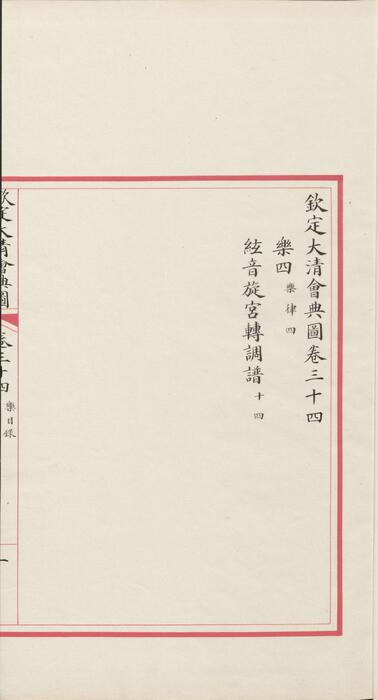 欽定大清會典圖卷三十四
樂四 樂律四
絃音旋宮轉調譜 十四
欽定大清會典圖 卷三十四 樂目錄 一